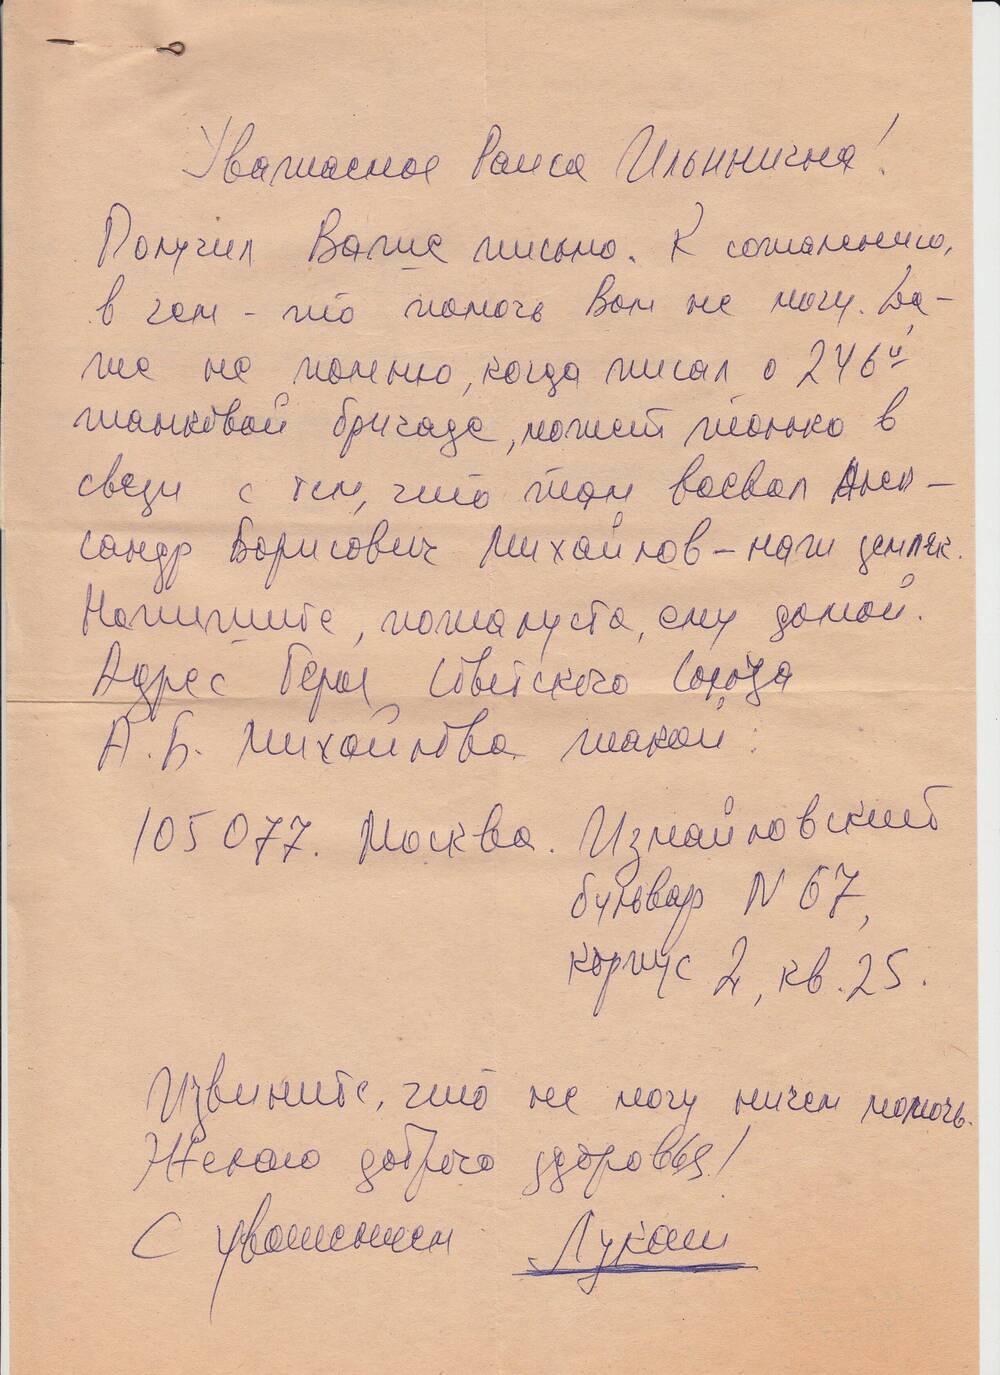 Уважаемая Раиса Ильинична!
Получил Ваше письмо. К сожалению,
в чем-то помочь Вам не могу. Да-
же не помню, когда писал о 246й
танковой бригаде, может только в
связи с тем, что там воевал Алек-
сандр Борисович Михайлов – наш земляк.
Напишите, пожалуста, ему домой.
Адрес Героя Советского Союза
А. Б. Михайлова такой:
105077. Москва. Измайловский
бульвар N 67,
корпус 2, кв. 25.
Извините, что не могу ничем помочь.
Желаю доброго здоровья!
С уважением Лукаш